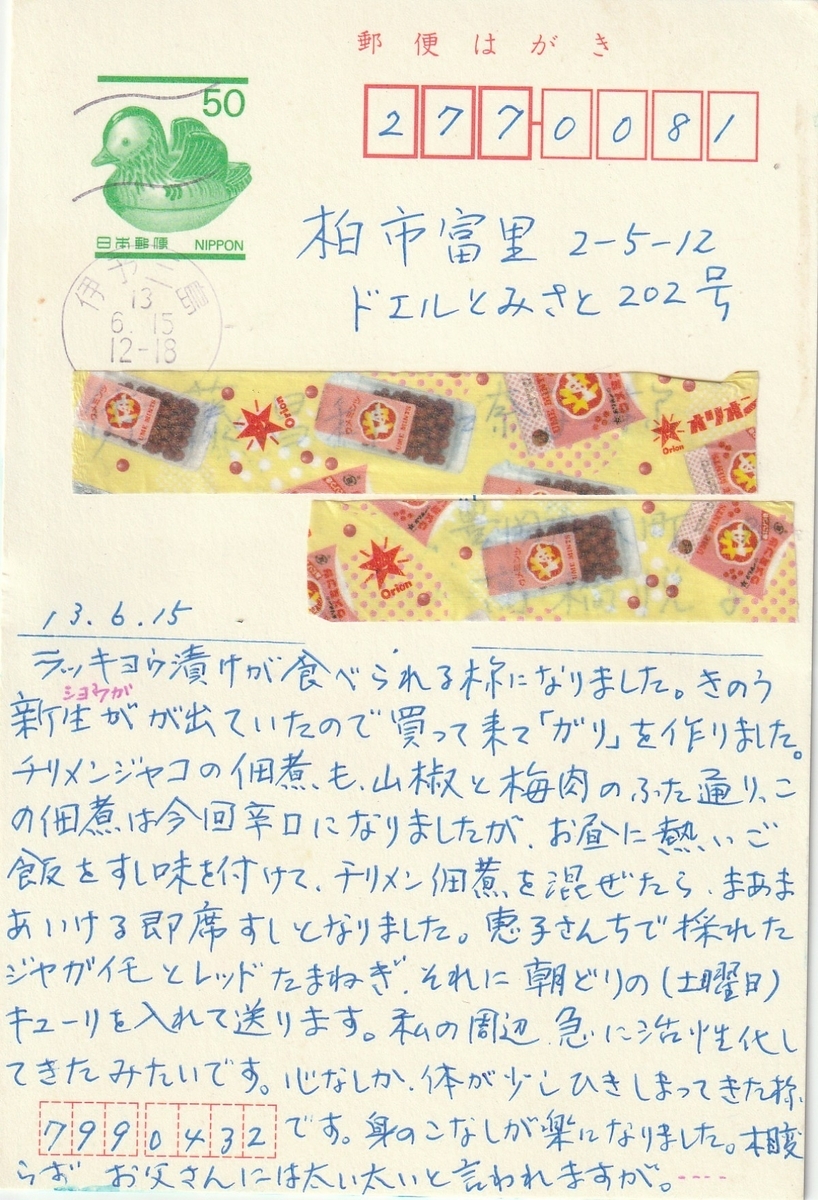 郵便はがき
50
日本郵便 NIPPON
277-0081
柏市富里 2-5-12
ドエルとみさと 202号
13
6.15
12-18
Orion
Orion
Orion
13.6.15
ラッキョウ漬けが食べられる様になりました。きのう
ショウガ
新生がが出ていたので買って来て「ガリ」を作りました。
チリメンジャコの佃煮も、山椒と梅肉のふた通り、こ
の佃煮は今回辛口になりましたが、お昼に熱いご
飯をすし味を付けて、チリメン佃煮を混ぜたら、まあま
あいける即席すしとなりました。恵子さんちで採れた
ジャガイモとレッドたまねぎ、それに朝どりの(土曜日)
キューリを入れて送ります。私の周辺、急に活性化し
てきたみたいです。心なしか、体が少しひきしまってきた様
です。身のこなしが楽になりました。相変
らず お父さんには太い太いと言われますが。----
7990432